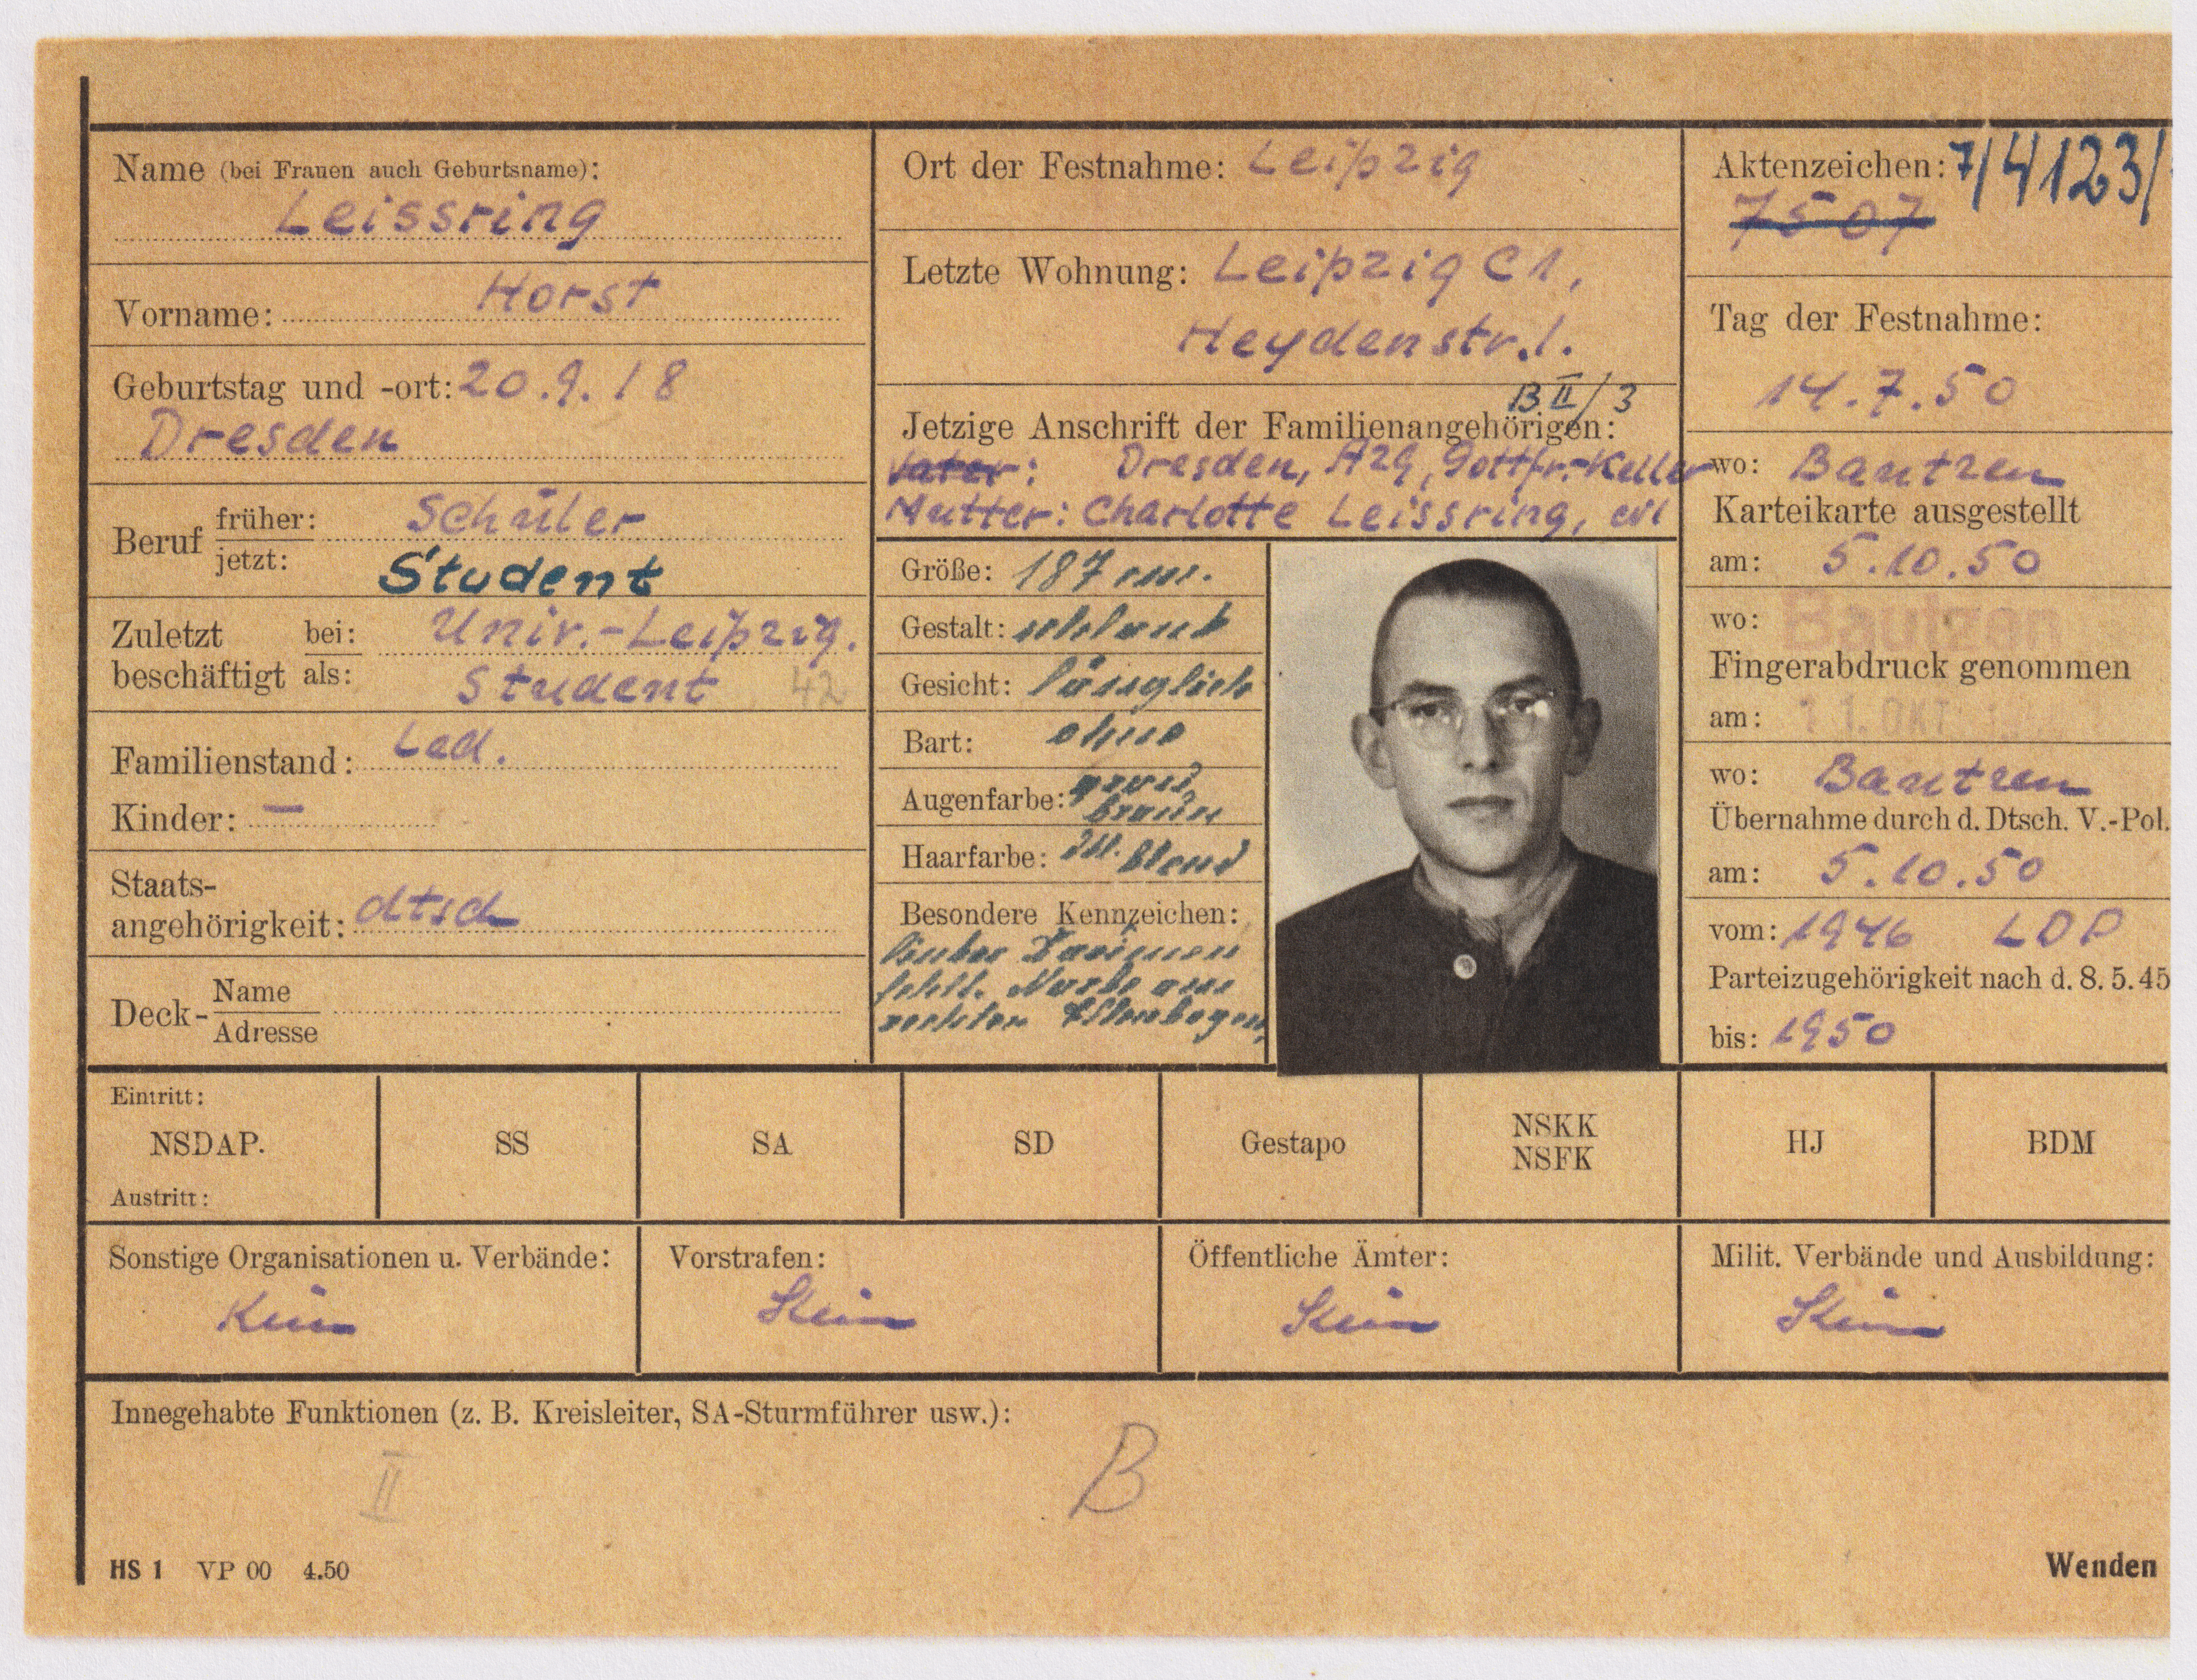 Name (bei Frauen auch Geburtsname):
Leissring
Vorname: Horst
Geburtstag und -ort: 20.9.18
Dresden
Beruf früher: Schüler
jetzt: Student
Zuletzt beschäftigt bei: Univ.-Leipzig.
als: Student 42
Familienstand: Led.
Kinder: –
Staats-
angehörigkeit: dtsch
Deck- Name
Adresse
Ort der Festnahme: Leipzig
Letzte Wohnung: Leipzig C1,
Heydenstr. 1.
B II/3
Jetzige Anschrift der Familienangehörigen:
Vater: Dresden, A29, Gottfr.-Keller
Mutter: Charlotte Leissring,
Größe: 187 cm.
Gestalt: schlank
Gesicht: länglich
Bart: ohne
Augenfarbe: grau
braun
Haarfarbe: dkl. blond
Besondere Kennzeichen:
linker Daumen
fehlt. Narbe am
rechten Ellenbogen
Aktenzeichen: 7/4123/
7507
Tag der Festnahme:
14.7.50
wo: Bautzen
Karteikarte ausgestellt
am: 5.10.50
wo: Bautzen
Fingerabdruck genommen
am: 11. OKT.
wo: Bautzen
Übernahme durch d. Dtsch. V.-Pol.
am: 5.10.50
vom: 1946 LDP
Parteizugehörigkeit nach d. 8. 5. 45
bis: 1950
Eintritt:
NSDAP. SS SA SD Gestapo NSKK NSFK HJ BDM
Austritt:
Sonstige Organisationen u. Verbände: Vorstrafen: Öffentliche Ämter: Milit. Verbände und Ausbildung:
Kein Kein Kein Kein
Innegehabte Funktionen (z. B. Kreisleiter, SA-Sturmführer usw.):
II B
HS 1 VP 00 4.50 Wenden